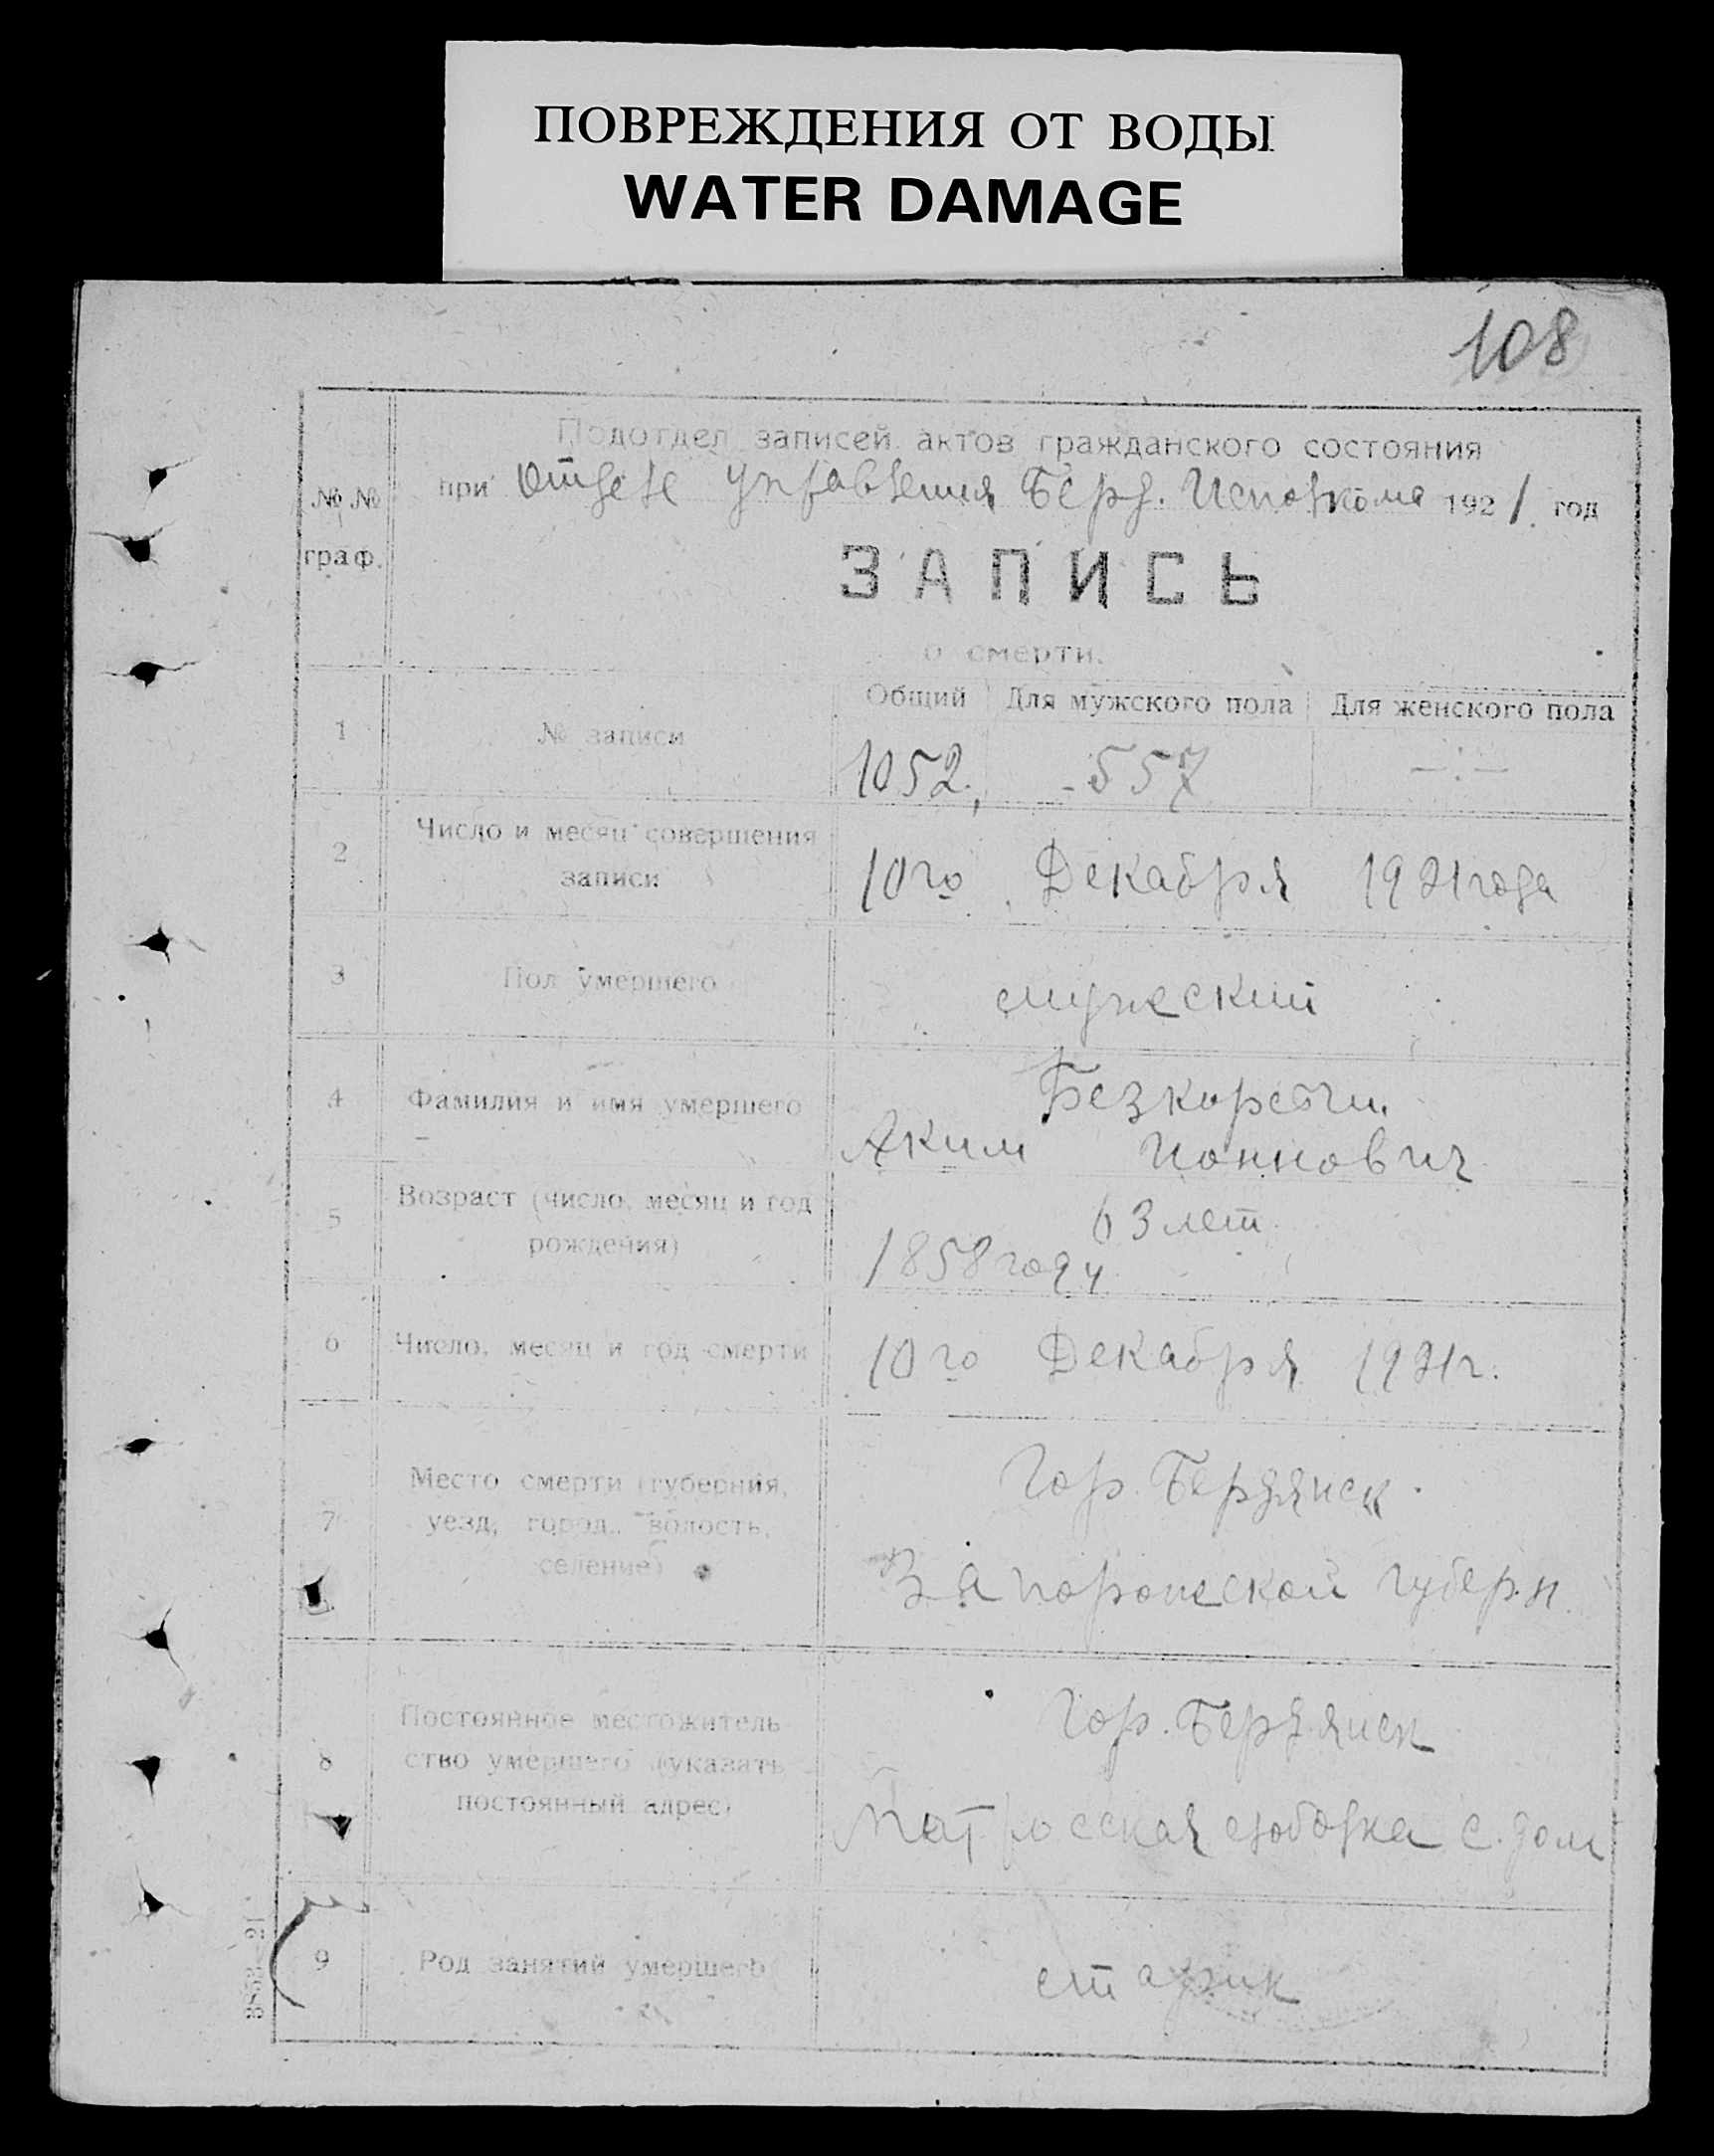 ПОВРЕЖДЕНИЯ ОТ ВОДЫ
WATER DAMAGE
108
№ №
граф.
Подотдел записей актов гражданского состояния
при Отделе Управления Берд. Исполкома 1921 год
ЗАПИСЬ
о смерти.
1 № записи
Общий Для мужского пола Для женского пола
1052, 557 —:—
2 Число и месяц совершения
записи
10го Декабря 1921 года
3 Пол умершего
мужеский
4 Фамилия и имя умершего
Аким Ионнович
5 Возраст (число, месяц и год
рождения)
63 лет
1858 году
6 Число, месяц и год смерти
10го Декабря 1921г.
7 Место смерти (губерния,
уезд, город, волость,
селение)
Гор. Бердянск
Запорожской губерн
8 Постоянное местожитель
ство умершего (указать
постоянный адрес)
Гор. Бердянск
Матросская слободка с. дом
9 Род занятий умершего
старик